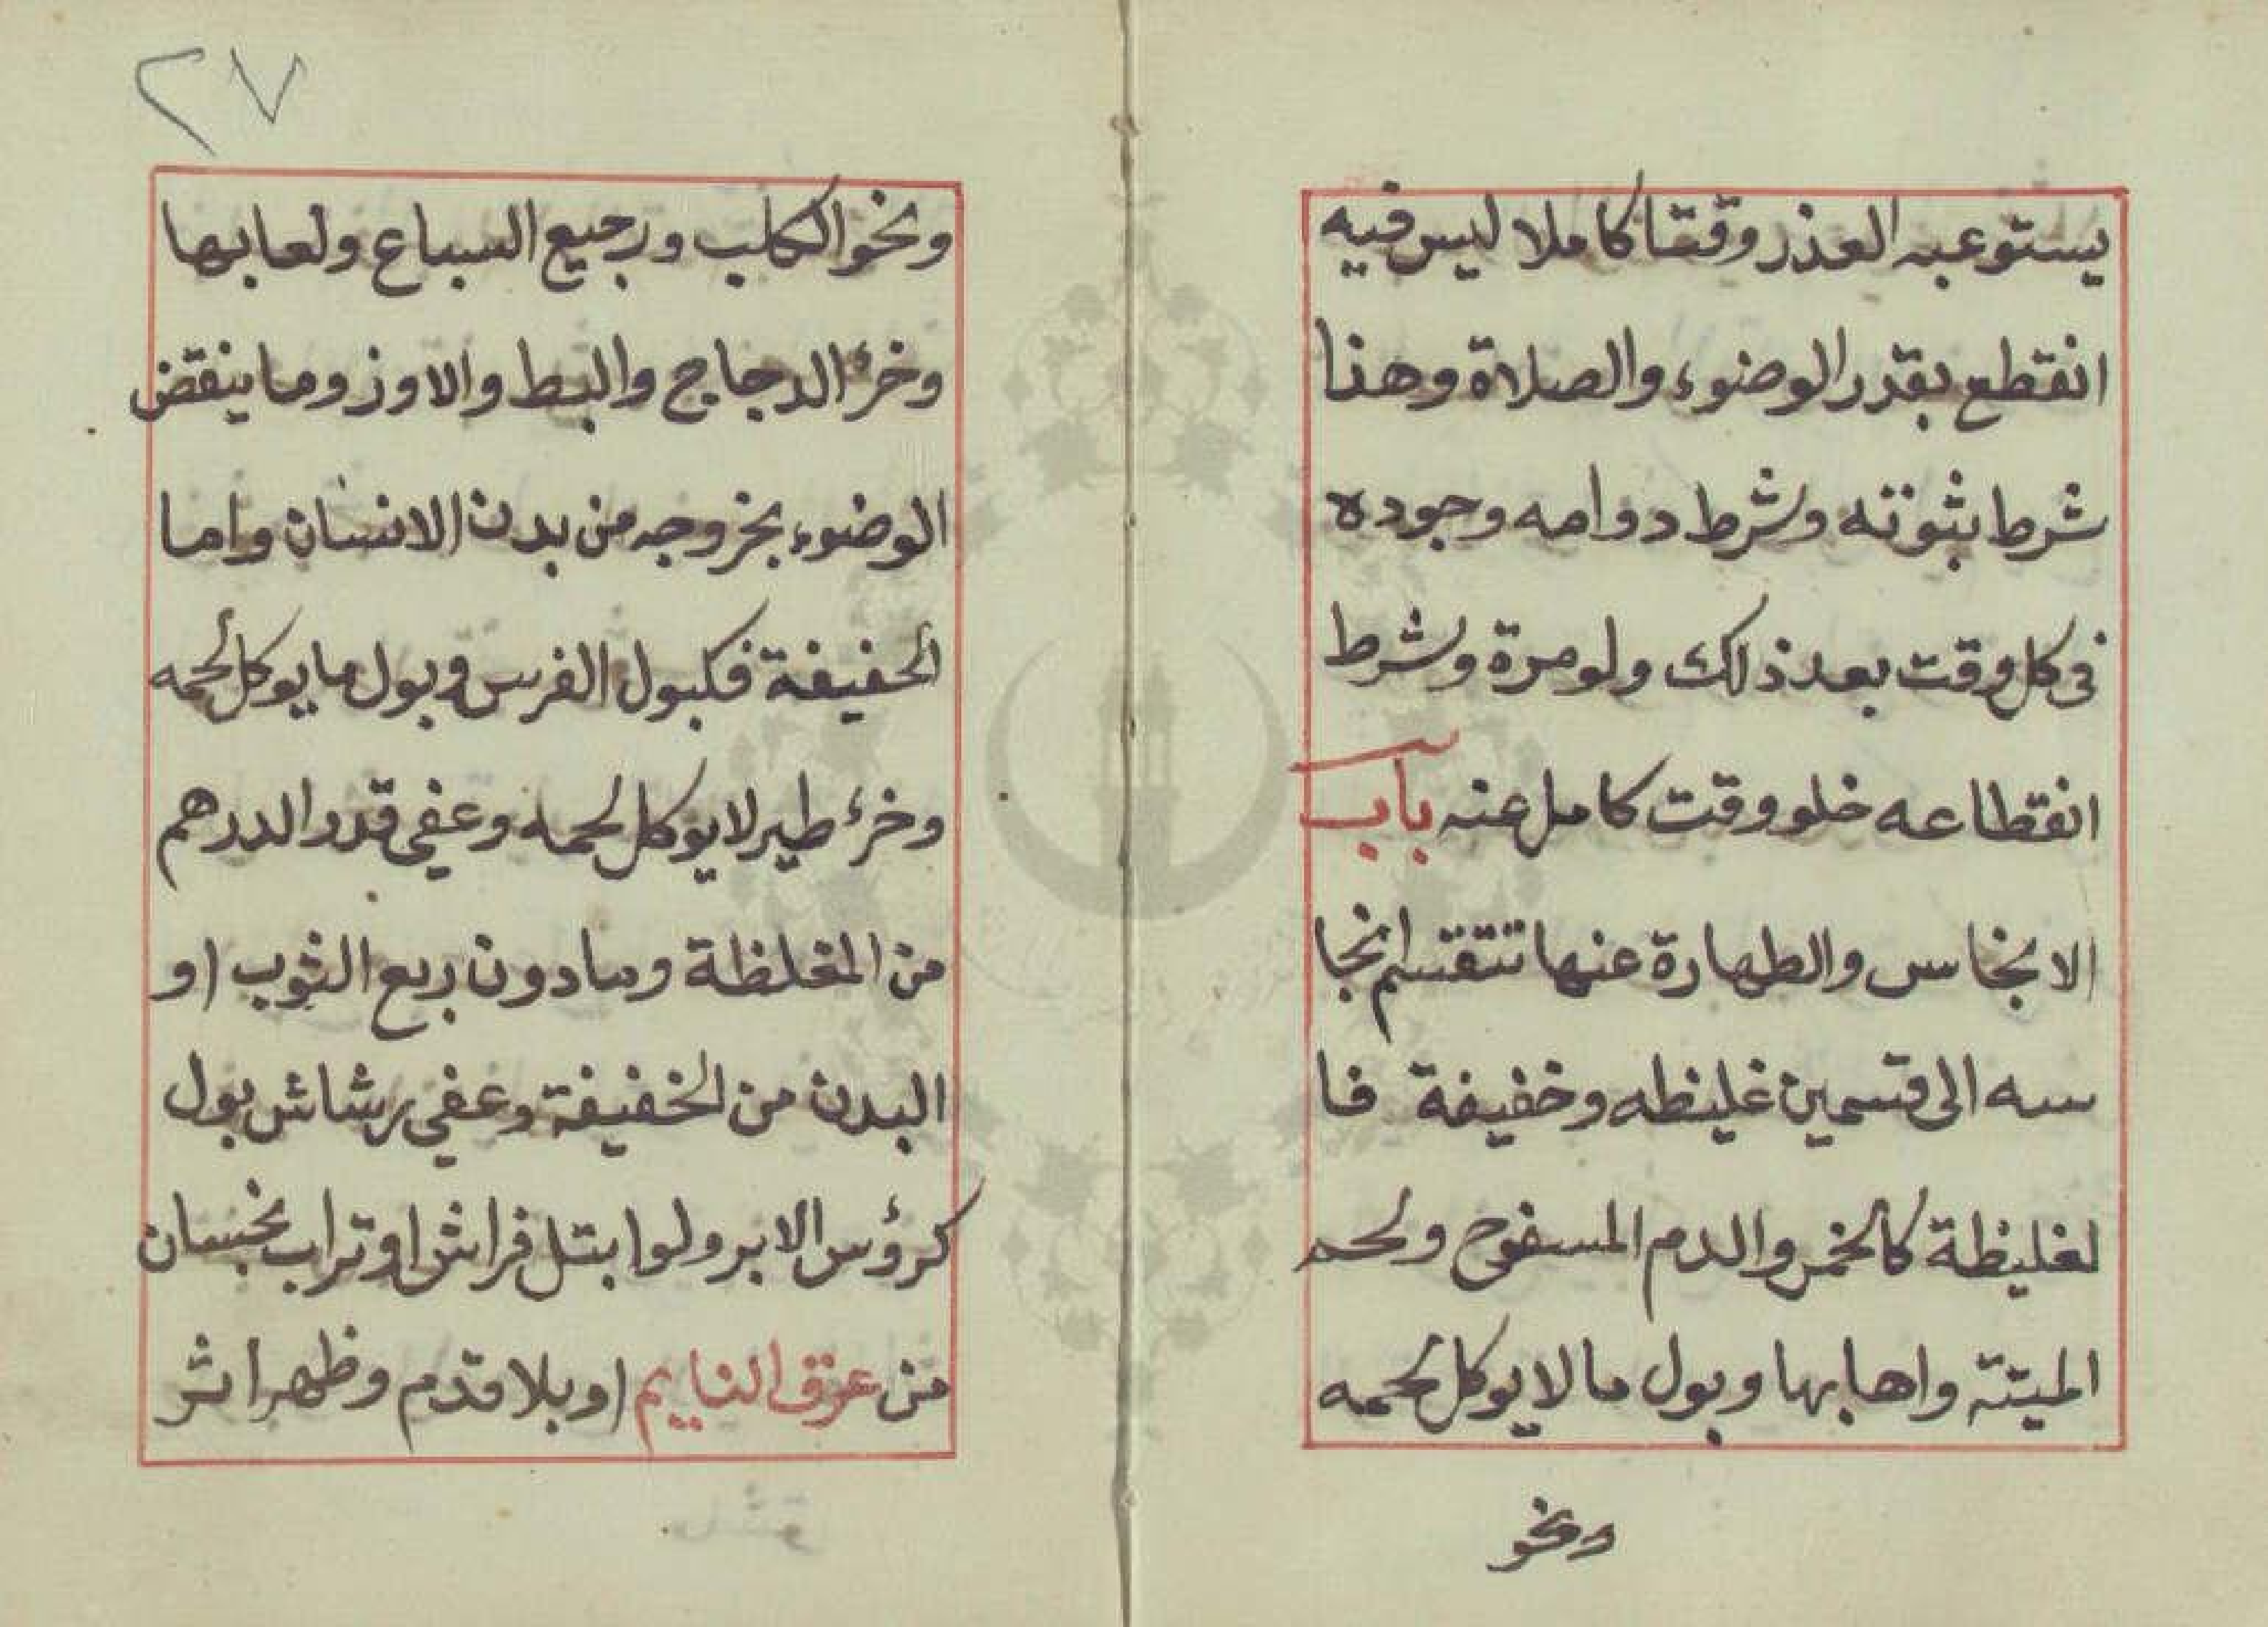 يستوعبه العذر وقتا كاملا ليس فيه
انقطع بقدر الوضوء والصلاة وهذا
شرط ثبوته وشرط دوامه وجوده
في كل وقت بعد ذلك ولو مرة وشرط
انقطاعه خلو وقت كامل عنه باب
الانجاس والطهارة عنها تتقسم انجا
سه الى قسمين غليظه وخفيفة فا
لغليظة كالخمر والدم المسفوح ولحم
الميتة واهابها وبول ما لا يوكل لحمه
ونحو
٢٧
ونحو الكلب ورجيع السباع ولعابها
وخرؤ الدجاج والبط والاوز وما ينقض
الوضوء بخروجه من بدن الانسان واما
الخفيفة فكبول الفرس وبول ما يوكل لحمه
وخرؤ طير لا يوكل لحمه وعفي قدر الدرهم
من المغلظة وما دون ربع الثوب او
البدن من الخفيفة وعفي رشاش بول
كرؤس الابر ولو ابتل فراش او تراب نجسان
من عرق النايم او بلا قدم وظهر اثر